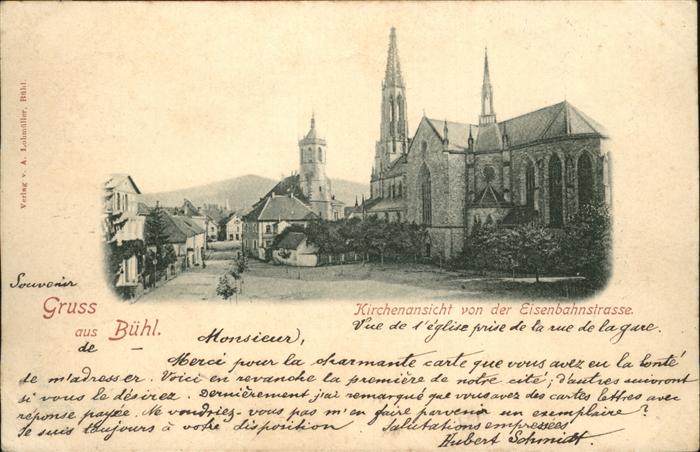 Verlag v. A. Lohmüller, Bühl.
Souvenir
Gruss
aus Bühl.
de —
Kirchenansicht von der Eisenbahnstrasse.
Vue de l'église prise de la rue de la gare.
Monsieur,
Merci pour la charmante carte que vous avez eu la bonté
de m'adresser. Voici en revanche la première de notre cité; d'autres suivront
si vous le désirez. Dernièrement j'ai remarqué que vous avez des cartes lettres avec
réponse payée. Ne voudriez-vous pas m'en faire parvenir un exemplaire?
Je suis toujours à votre disposition. Salutations empressées
Hubert Schmidt.